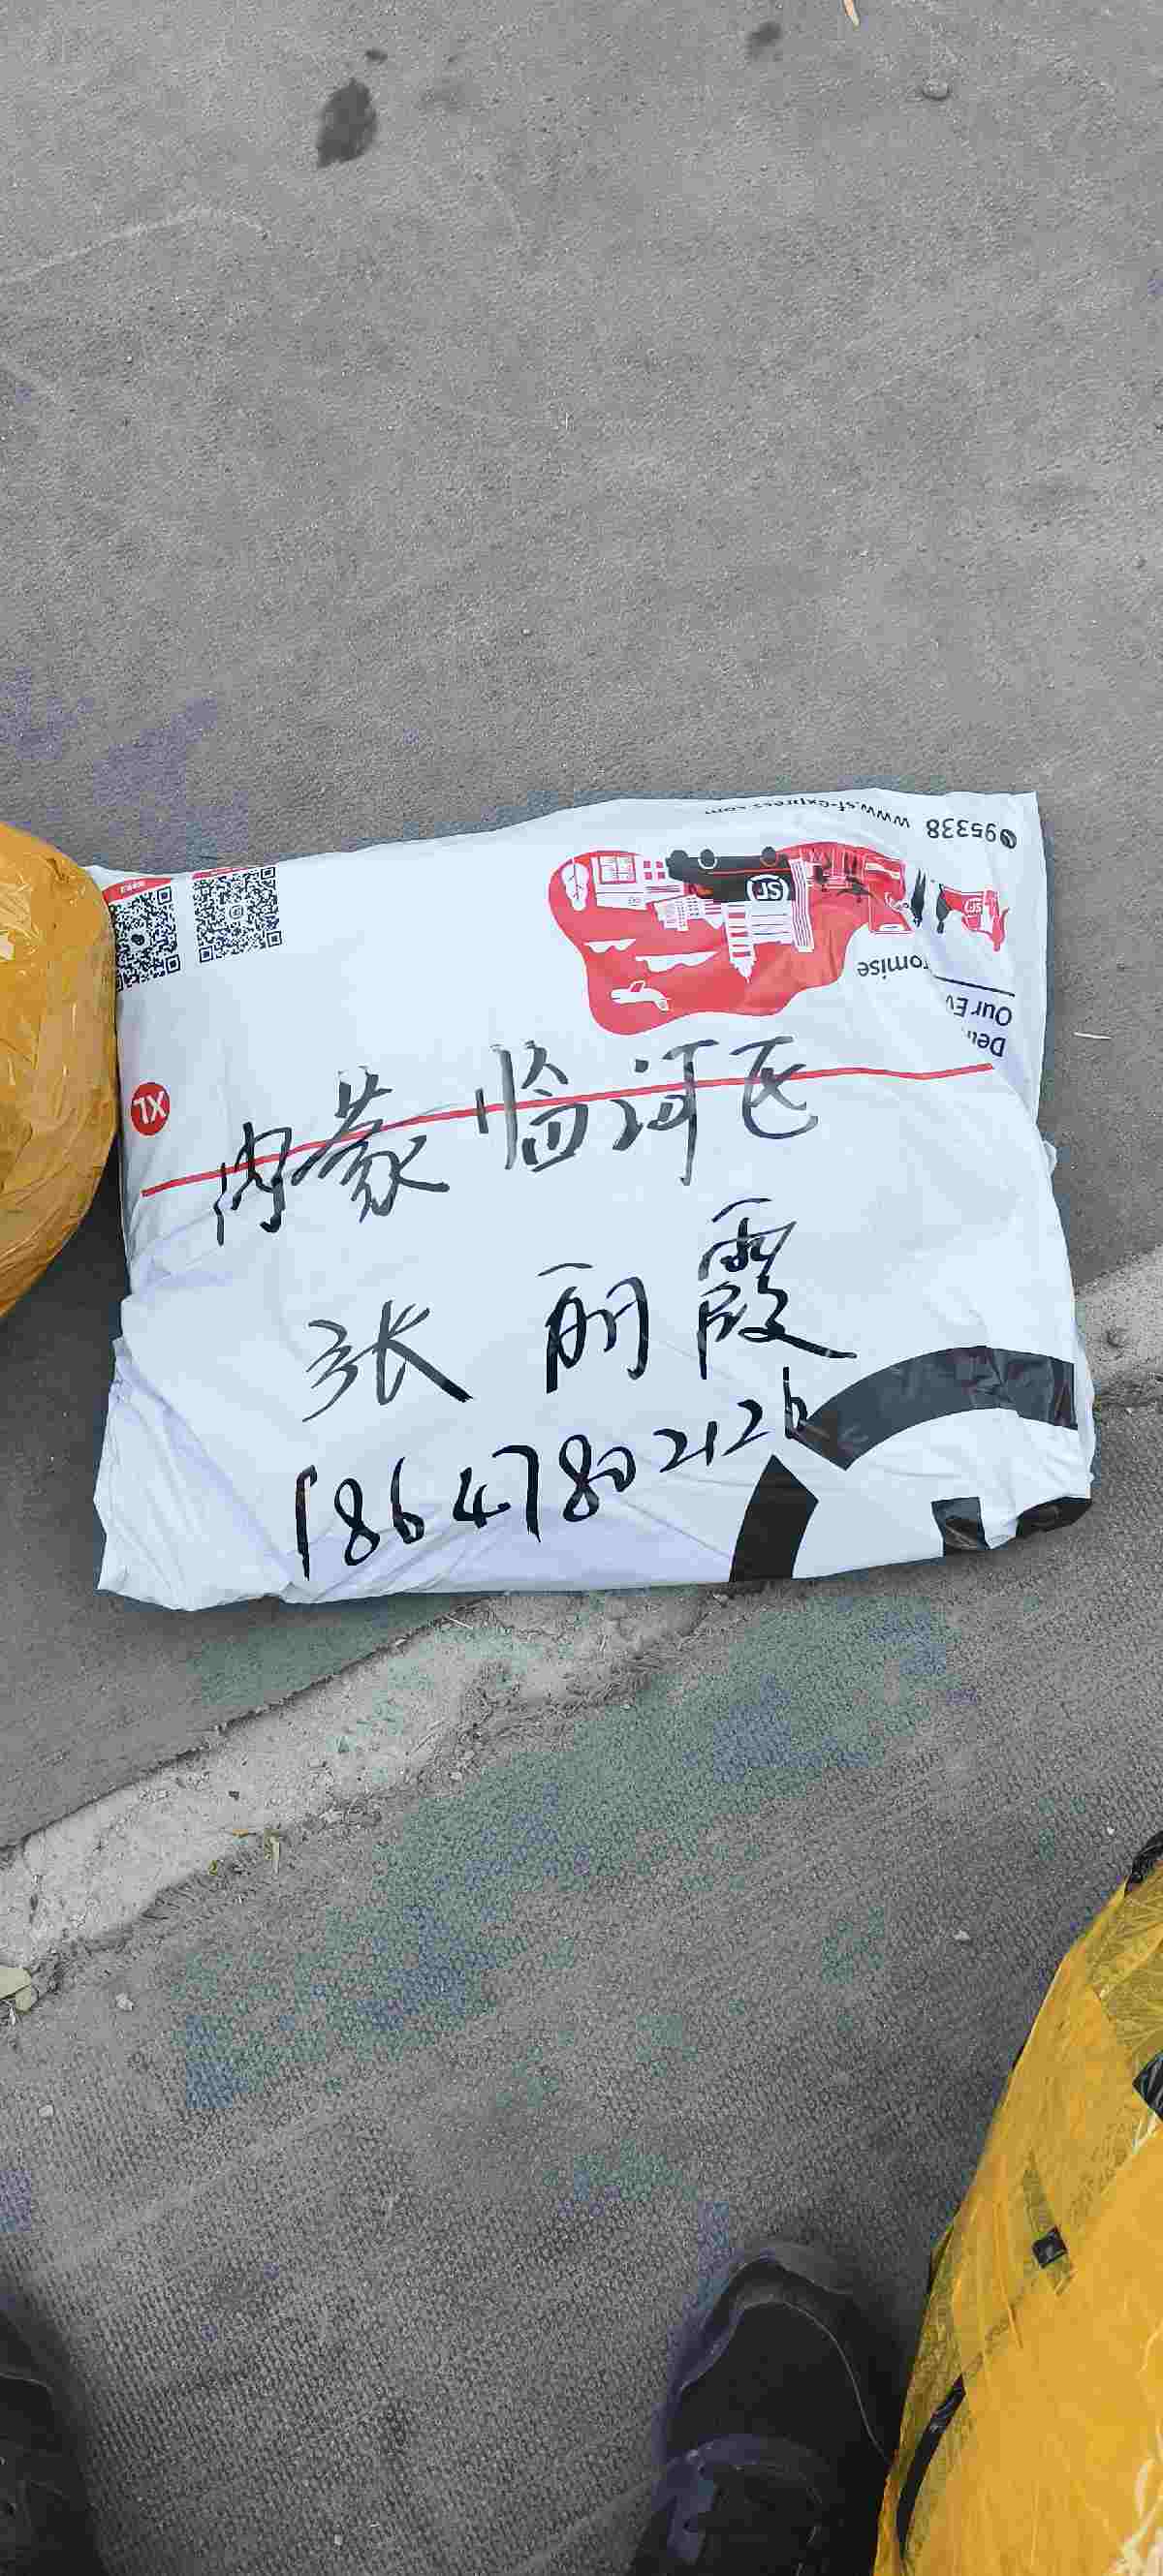 95338 www.sf-express.com
SF
SF
omise
Our Ev
XL
内蒙临河区
张丽霞
18647802126